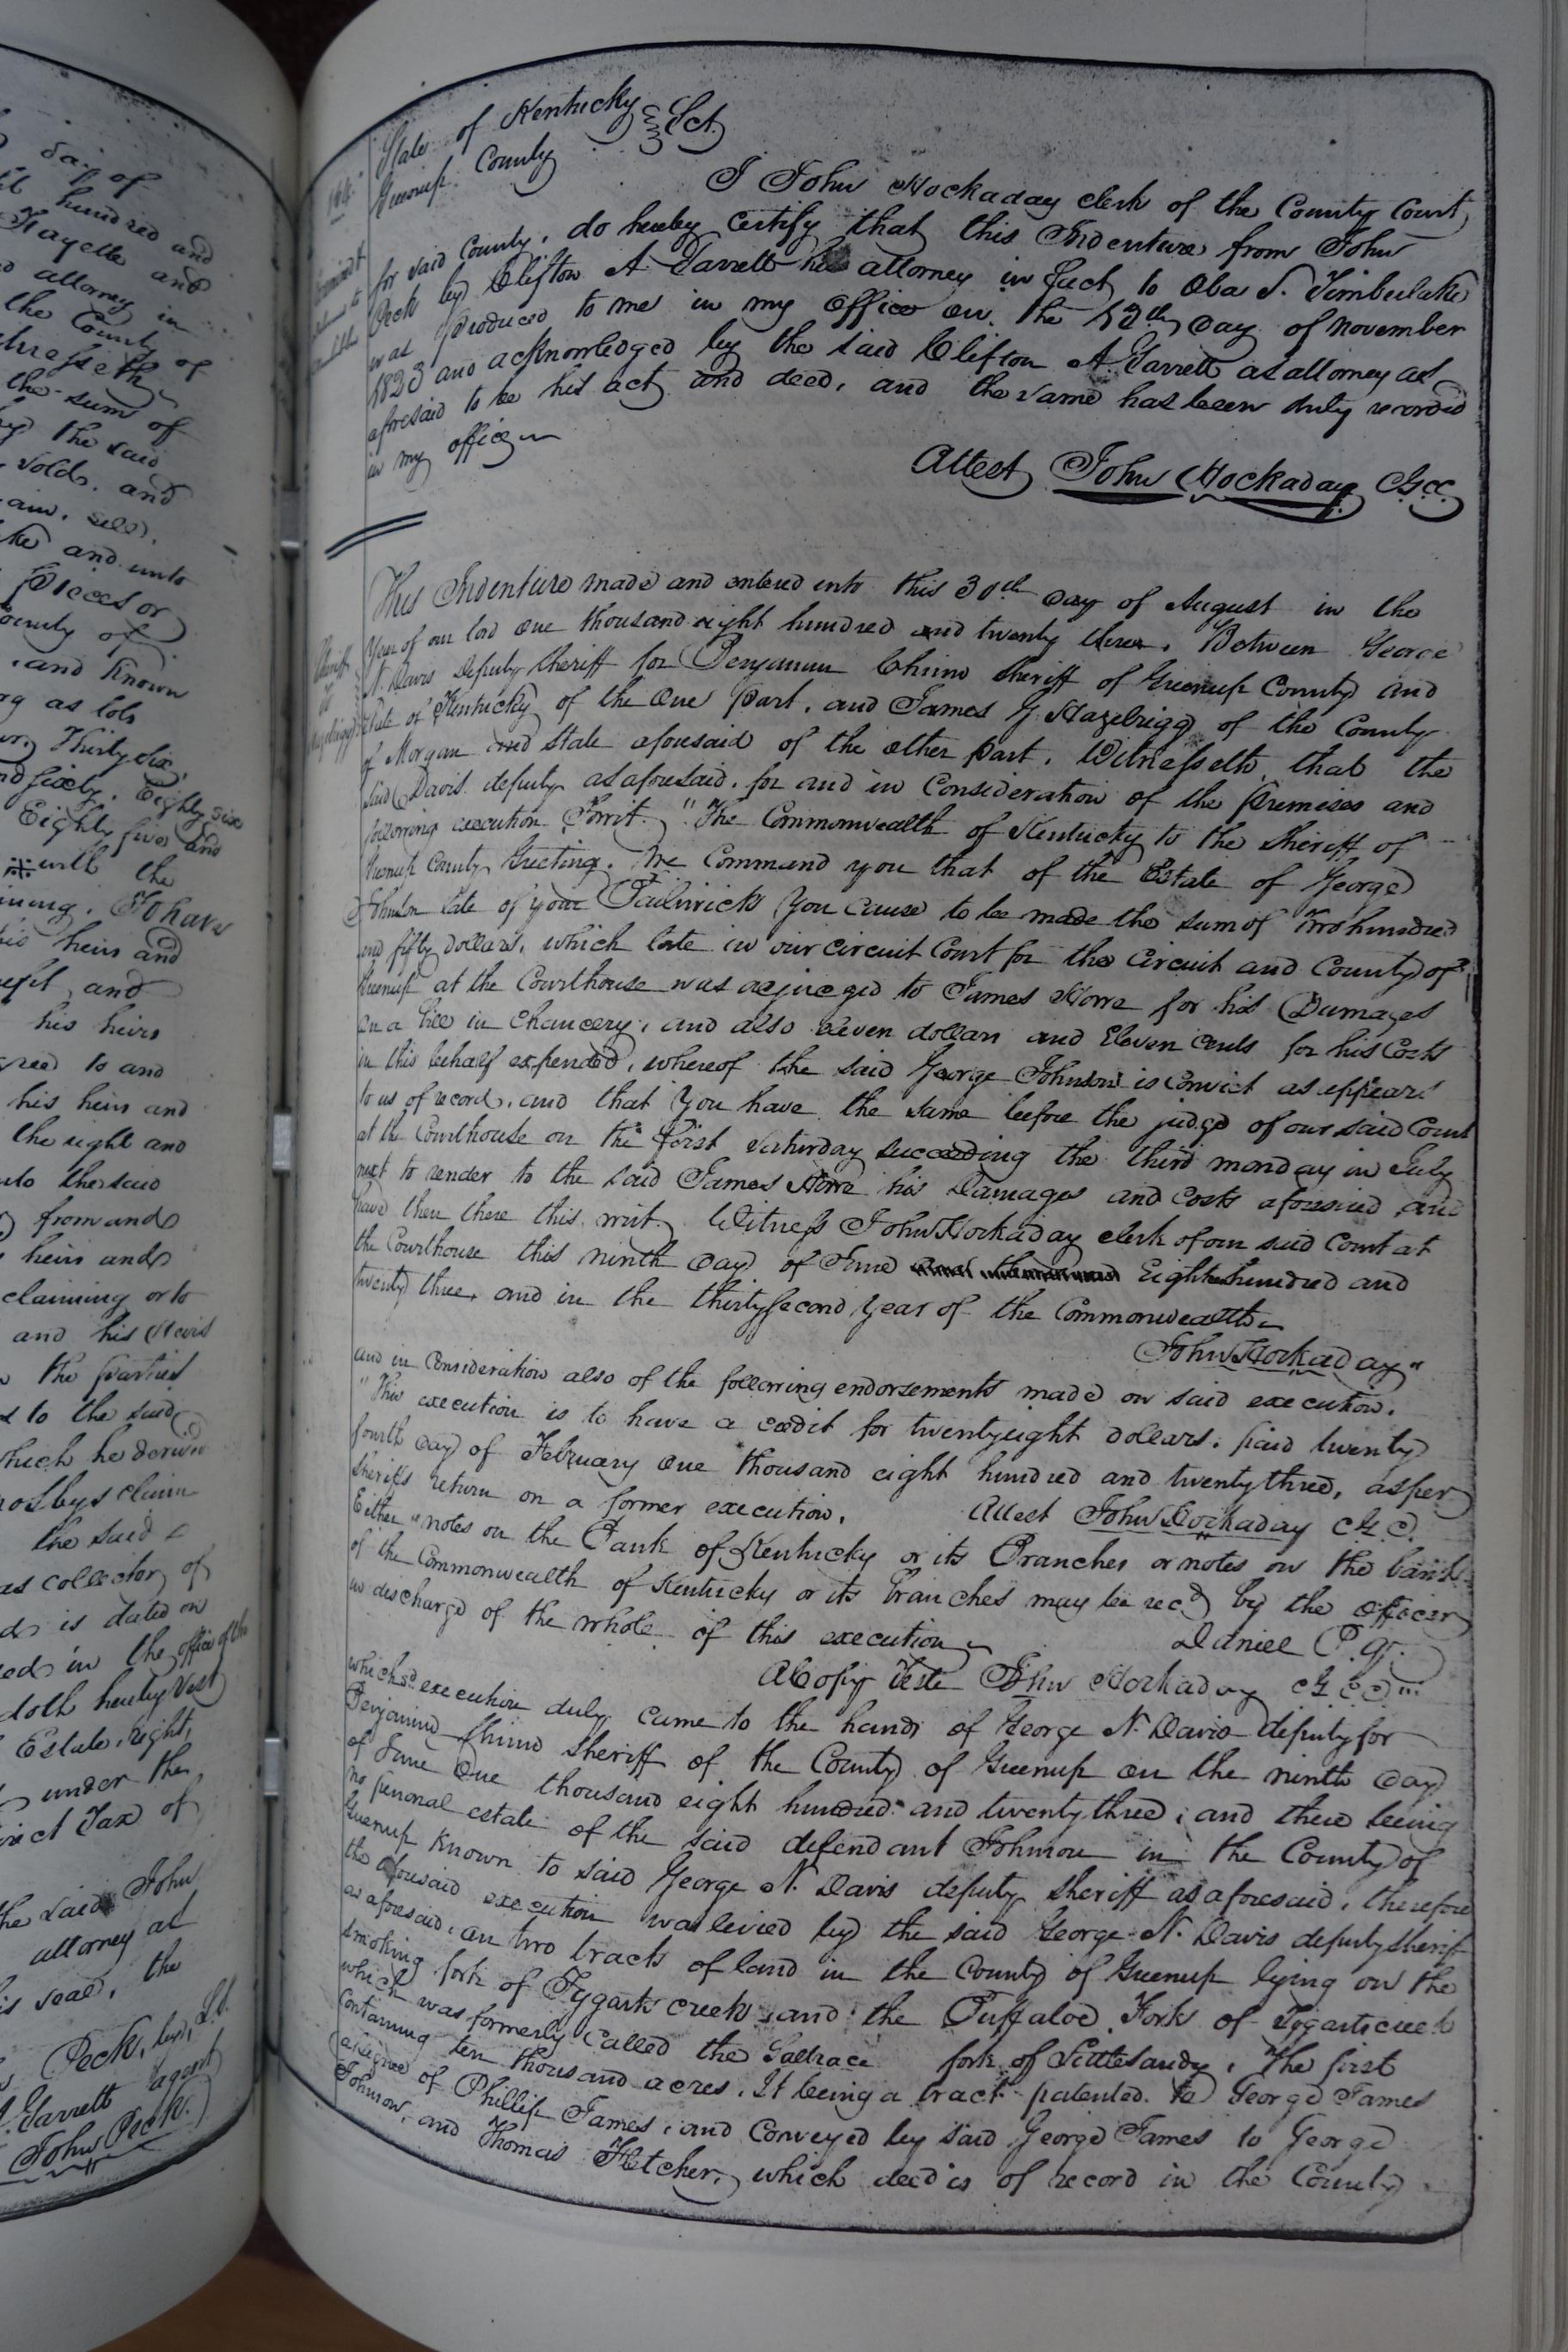 day of
hundred and
Fayette and
attorney in
the County of
the sum of
the said
sold, and
sell,
and unto
Pieces or
County of
and known
as lots
Thirty six,
and sixty, Eighty six
Eighty five and
with the
To have
his heirs and
and
his heirs
agreed to and
his heirs and
the right and
unto the said
from and
heirs and
claiming or to
and his Heirs
the parties
to the said
which he derived
claim
the said
as collector of
is dated on
in the office of the
doth hereby vest
Estate, right,
under the
direct Tax of
the said John
attorney at
his seal, the
Peck, by
Garrett agent
John Peck.
State of Kentucky Sct
Greenup County
I John Hockaday clerk of the County Court
for said County, do hereby certify that this Indenture from John
Peck by Clifton A Garrett his attorney in fact to Oba S. Timberlake
was produced to me in my office on the 12th day of November
1823 and acknowledged by the said Clifton A. Garrett as attorney as
aforesaid to be his act and deed, and the same has been duly recorded
in my office
Attest John Hockaday
This Indenture made and entered into this 30th day of August in the
Year of our lord One thousand eight hundred and twenty three. Between George
N. Davis deputy sheriff for Benjamin Chinn sheriff of Greenup County and
State of Kentucky of the one part, and James G. Hazelrigg of the County
of Morgan and State aforesaid of the other part. Witnesseth, that the
said Davis deputy as aforesaid, for and in Consideration of the premises and
following execution Towit. "The Commonwealth of Kentucky to the sheriff of
Greenup County Greeting. We Command you that of the Estate of George
Johnson late of your Bailiwick You cause to be made the sum of Two hundred
and fifty dollars, which late in our circuit Court for the Circuit and County of
Greenup at the Courthouse was adjudged to James Howe for his Damages
on a bill in chancery, and also Eleven dollars and Eleven Cents for his Costs
in this behalf expended, whereof the said George Johnson is convict as appears
to us of record, and that You have the same before the judge of our said Court
at the Courthouse on the first saturday succeeding the third monday in July
next to render to the said James Howe his Damages and costs aforesaid and
have then there this writ. Witness John Hockaday clerk of our said Court at
the Courthouse this ninth day of June Eighteen hundred and
twenty three, and in the thirtysecond Year of the Commonwealth
John Hockaday"
and in Consideration also of the following endorsements made on said execution.
"This execution is to have a credit for twentyeight dollars, paid twenty
fourth day of February one thousand eight hundred and twenty three, as per
sheriffs return on a former execution. Attest John Hockaday CGC
Either "notes on the Bank of Kentucky or its Branches or notes on the bank
of the Commonwealth of Kentucky or its Branches may be recd by the officer
in discharge of the whole of this execution Daniel P. Q.
A Copy Teste John Hockaday CGCC"
which sd execution duly came to the hands of George N. Davis deputy for
Benjamin Chinn sheriff of the County of Greenup on the ninth day
of June One thousand eight hundred and twenty three, and there being
no personal estate of the said defendant Johnson in the County of
Greenup known to said George N. Davis deputy sheriff as aforesaid, therefore
the aforesaid execution was levied by the said George N. Davis deputy sheriff
as aforesaid, on two tracts of land in the County of Greenup lying on the
smoking fork of Tygarts creek and the Buffaloe Fork of Tygarts creek
which was formerly Called the fork of Little sandy. The first
Containing ten thousand acres. It being a tract patented to George James
assignee of Phillip James, and Conveyed by said George James to George
Johnson, and Thomas Fletcher, which deed is of record in the County